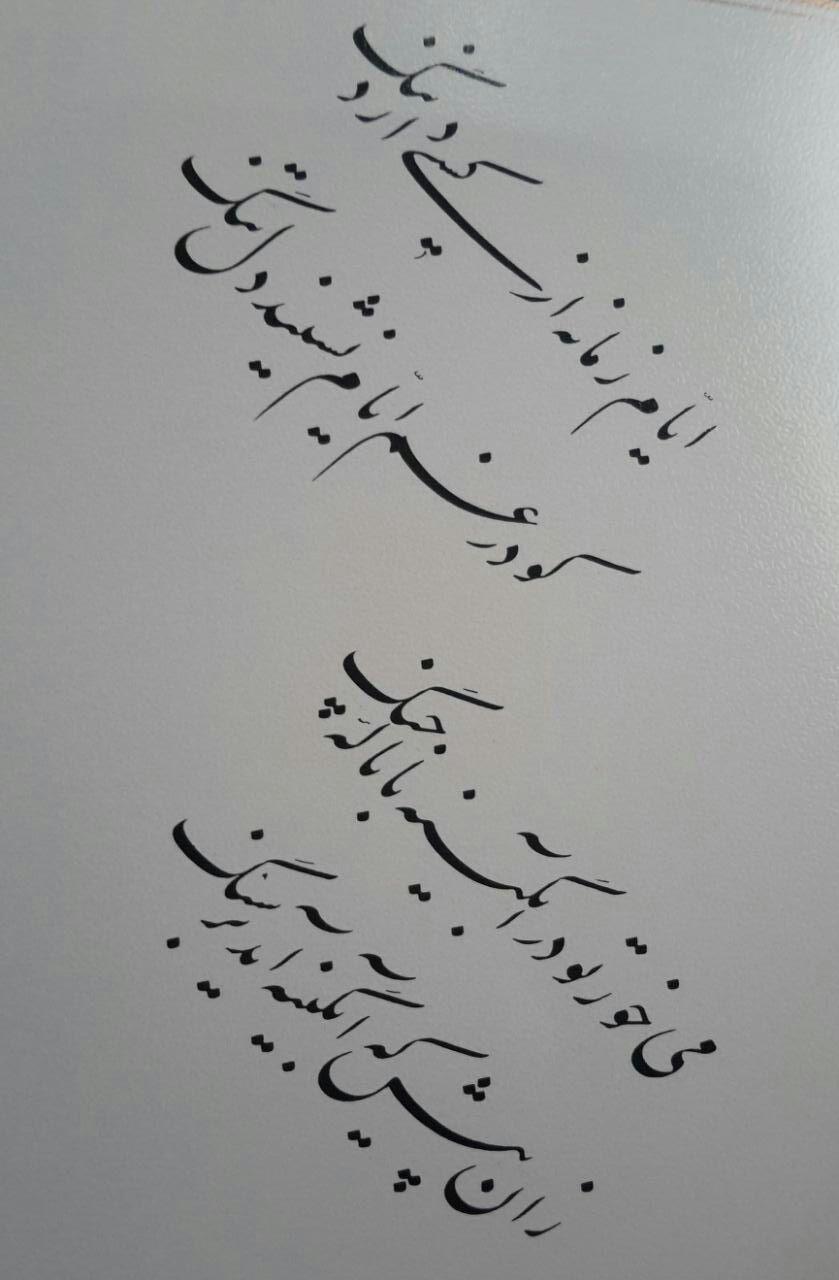 ایّام زمانه از کسی دارد ننگ
کو در غم ایّام نشیند دلتنگ
می خور تو در آبگینه با ناله چنگ
زان پیش که آبگینه آید بر سنگ